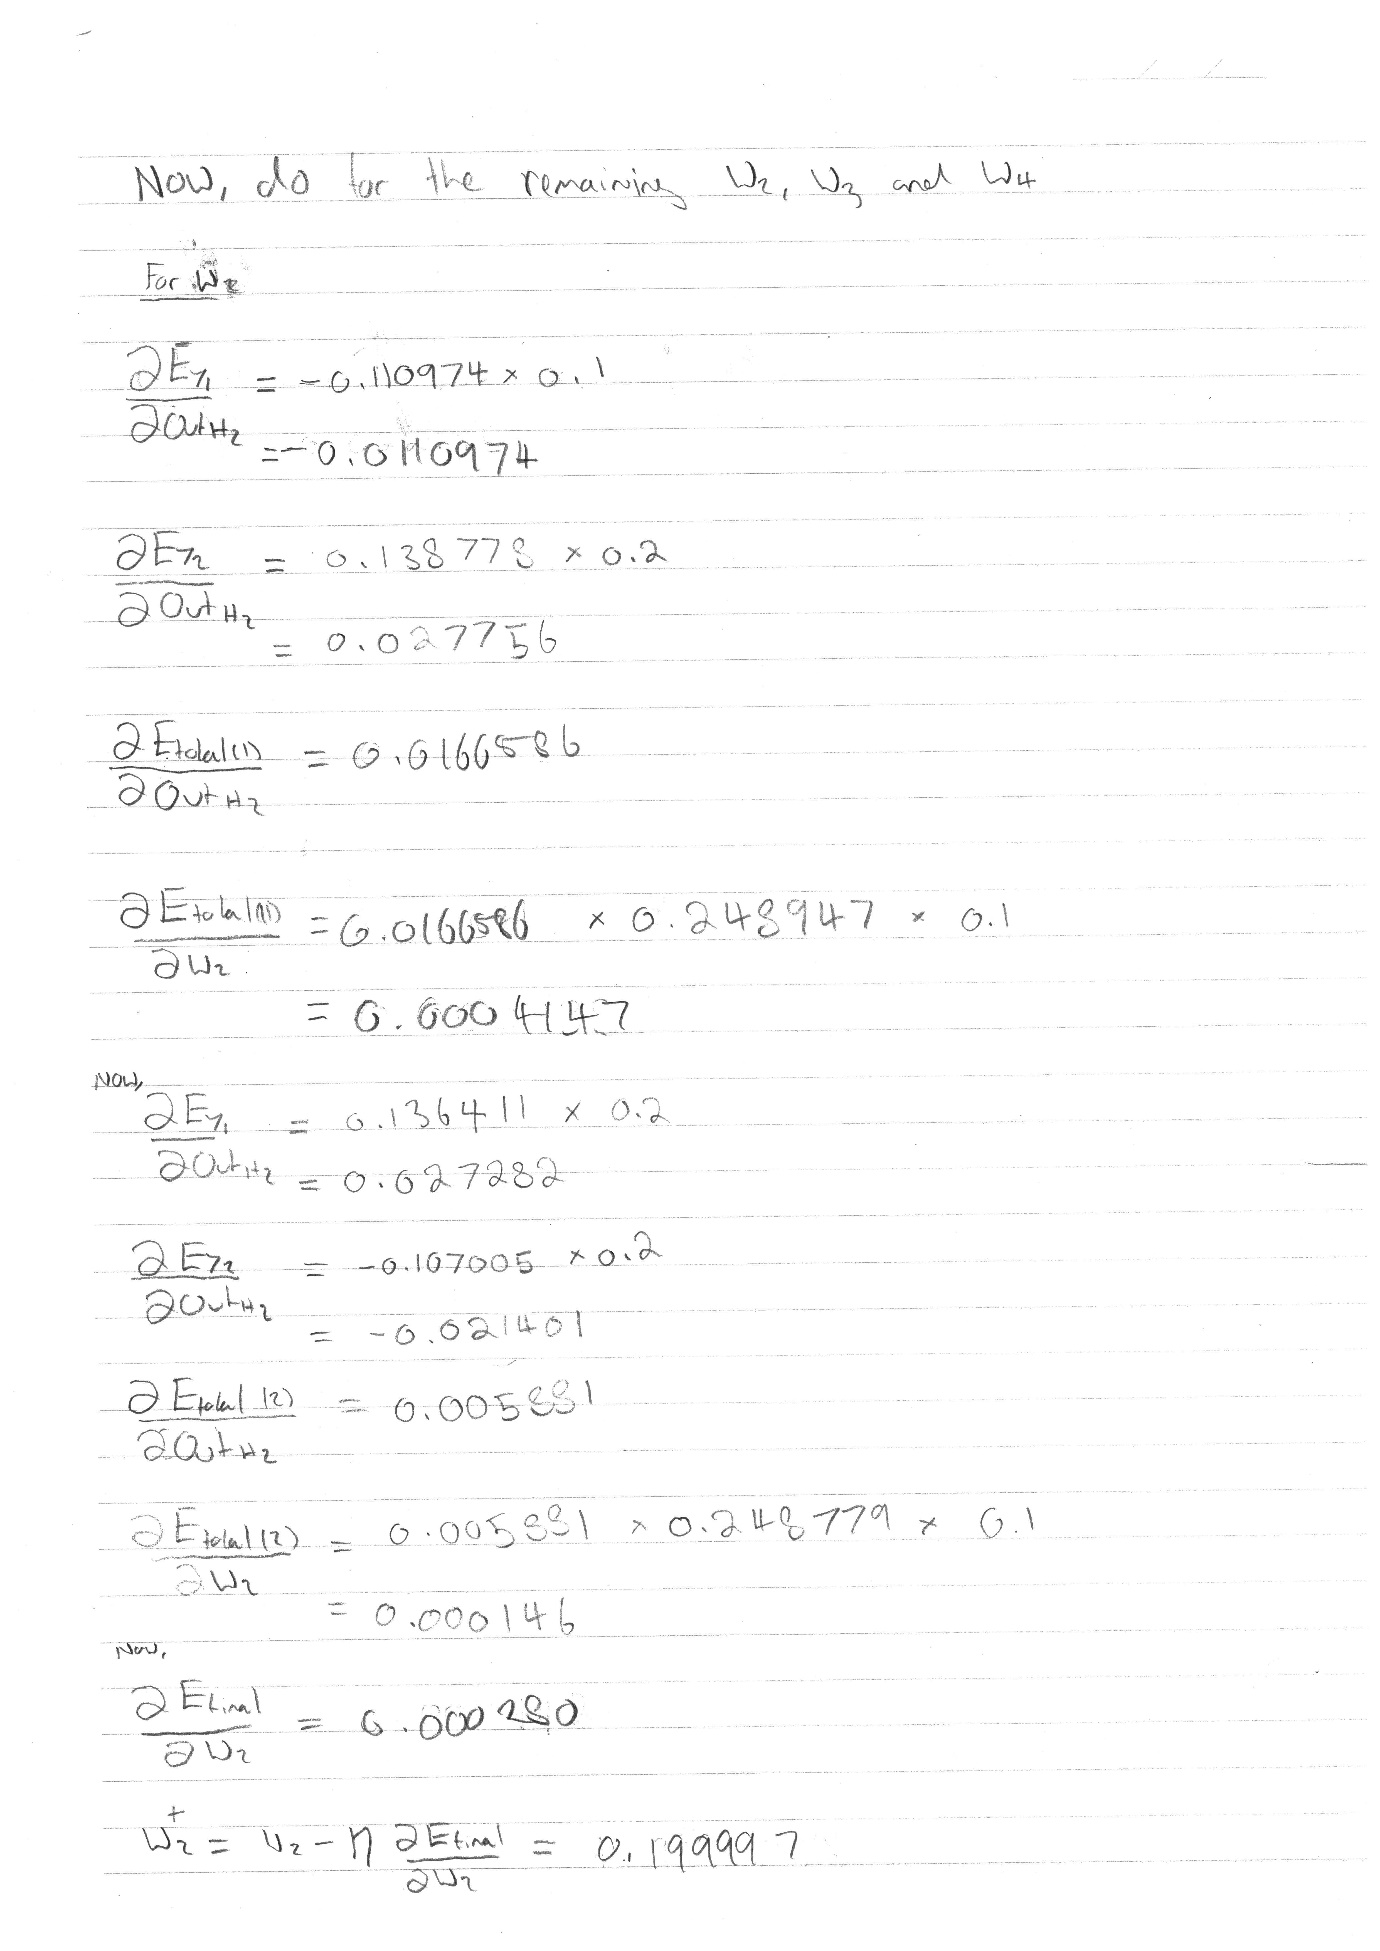 Now, do for the remaining W2, W3 and W4
For W2
∂E_y1/∂Out_H2 = -0.110974 × 0.1
= -0.0110974
∂E_y2/∂Out_H2 = 0.138778 × 0.2
= 0.027756
∂E_total(1)/∂Out_H2 = 0.0166586
∂E_total(1)/∂W2 = 0.0166586 × 0.248947 × 0.1
= 0.0004147
Now,
∂E_y1/∂Out_H2 = 0.136411 × 0.2
= 0.027282
∂E_y2/∂Out_H2 = -0.107005 × 0.2
= -0.021401
∂E_total(2)/∂Out_H2 = 0.005881
∂E_total(2)/∂W2 = 0.005881 × 0.248779 × 0.1
= 0.000146
Now,
∂E_final/∂W2 = 0.000280
W2⁺ = W2 - η ∂E_final/∂W2 = 0.199997